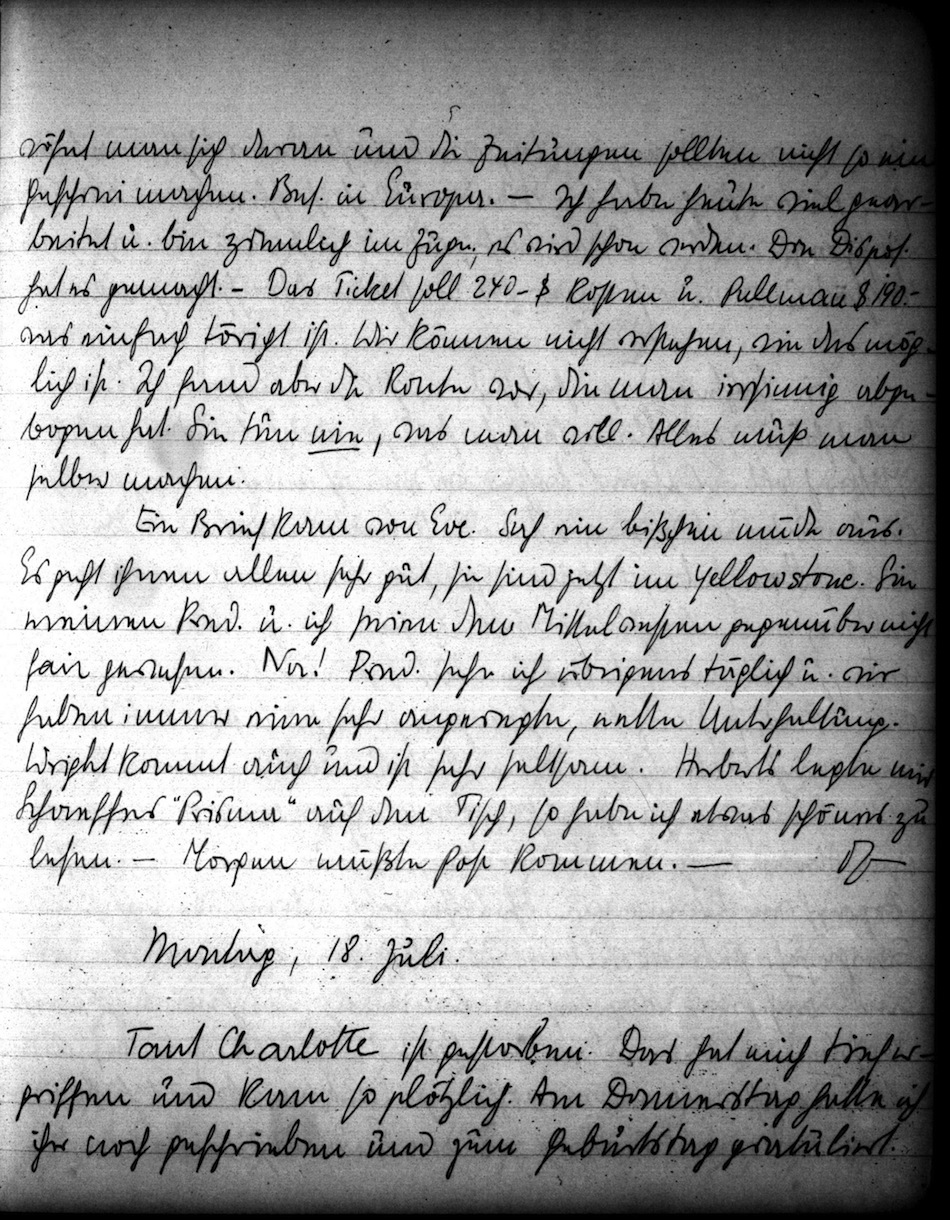 wöhnt man sich daran und die Zeitungen sollten nicht so ein
Geschrei machen. Bes. in Europa. — Ich habe heute viel gear-
beitet u. bin ziemlich im Zuge, es wird schon werden. Don Dispos.
hat es gemacht. - Das Ticket soll 240-$ kosten u. Pullman $190.-
was einfach töricht ist. Wir können nicht verstehen, wie das mög-
lich ist. Ich fand aber die Route vor, die man irrsinnig abge-
bogen hat. Sie tun nie, was man will. Alles muß man
selber machen.
Ein Brief kam von Eve. Sah ein bißchen müde aus.
Es geht ihnen allen sehr gut, sie sind jetzt im Yellowstone. Sie
meinen Pred. u. ich seien dem Mittelwesten gegenüber nicht
fair gewesen. Na! Pred. sehe ich übrigens täglich u. wir
haben immer eine sehr angeregte, nette Unterhaltung.
Wright kommt auch und ist sehr seltsam. Herberts legte mir
Schaeffers "Prisma" auf den Tisch, so habe ich etwas schönes zu
lesen. — Morgen müßte Post kommen. —
Montag, 18. Juli.
Tant Charlotte ist gestorben. Das hat mich tief er-
griffen und kam so plötzlich. Am Donnerstag hatte ich
ihr noch geschrieben und zum Geburtstag gratuliert.